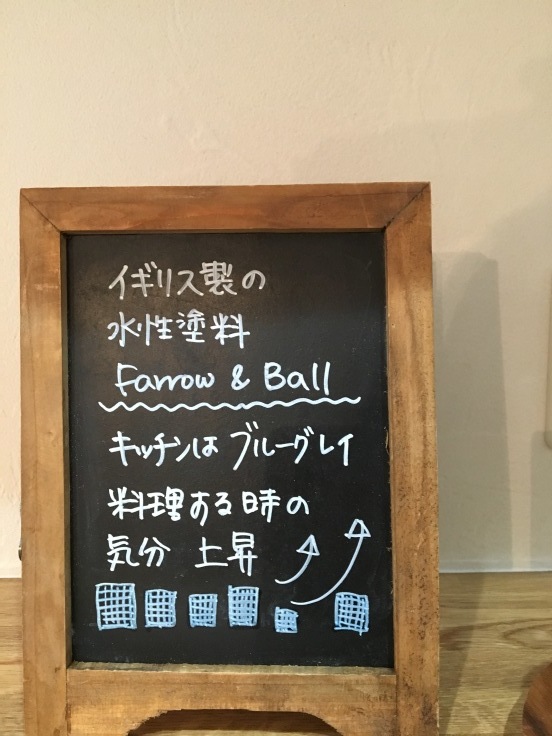 イギリス製の
水性塗料
Farrow & Ball
キッチンはブルーグレイ
料理する時の
気分 上昇